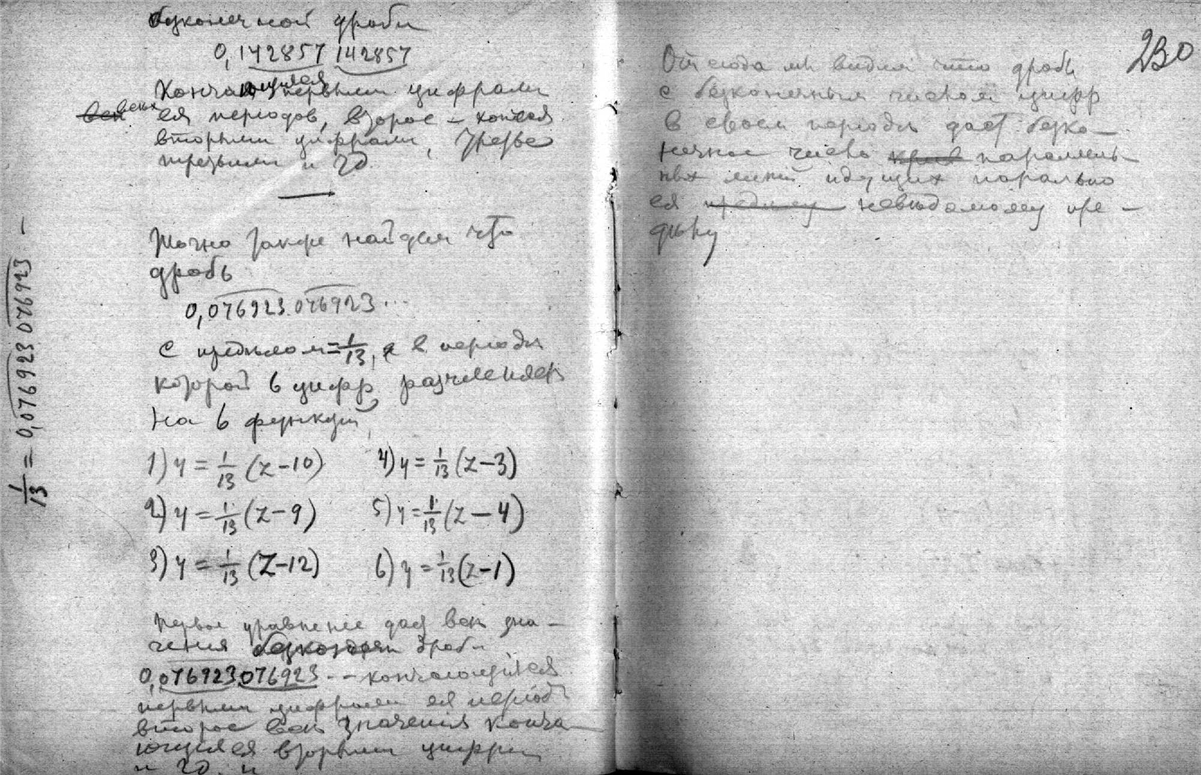 безконечной дроби
0,142857 142857
Кончающияся первыми цифрами
всех ея периодов, второе – кончая
вторыми цифрами, третье
третьими и т д
Точно также найдем что
дробь
0,076923 076923...
с пределом = 1/13, в периоде
которой 6 цифр разчленяется
на 6 функций
1) y = 1/13 (z–10)
4) y = 1/13 (z–3)
2) y = 1/13 (z–9)
5) y = 1/13 (z–4)
3) y = 1/13 (z–12)
6) y = 1/13 (z–1)
первое уравнение дает все зна–
чения дроби
0,076923,076923 – – кончающийся
первыми цифрами ея период
второе все значения конча–
ющияся вторыми цифрами
и т д. и
1/13 = 0,076923 076923 –
230
Отсюда мы видим что дробь
с безконечным числом цифр
в своем периоде дает безко–
нечное число паралель–
ных линий идущих
ея неведомому пре–
делу